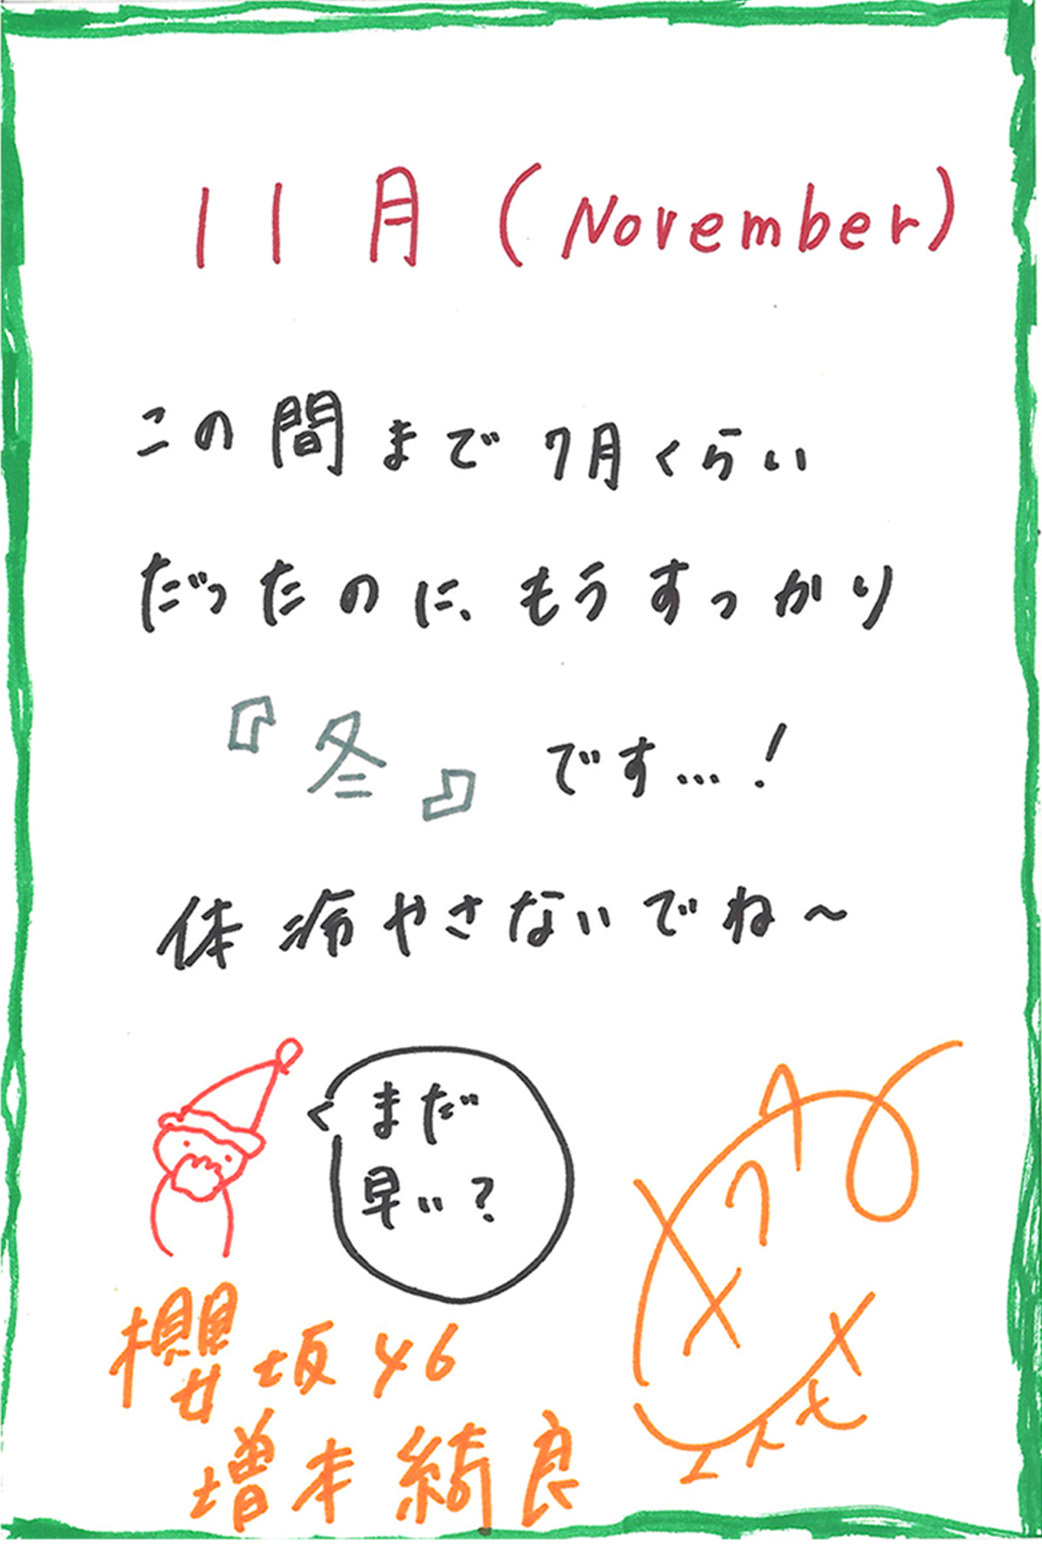 11月(November)
この間まで7月くらい
だったのに、もうすっかり
『冬』です…!
体冷やさないでね〜
まだ
早い?
櫻坂46
増本綺良